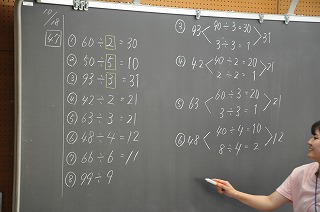 10/18
49
① 60÷2=30
② 50÷5=10
③ 93÷3=31
④ 42÷2=21
⑤ 63÷3=21
⑥ 48÷4=12
⑦ 66÷6=11
⑧ 99÷9
③ 93 90÷3=30 31
3÷3=1
④ 42 40÷2=20 21
2÷2=1
⑤ 63 60÷3=20 21
3÷3=1
⑥ 48 40÷4=10 12
8÷4=2